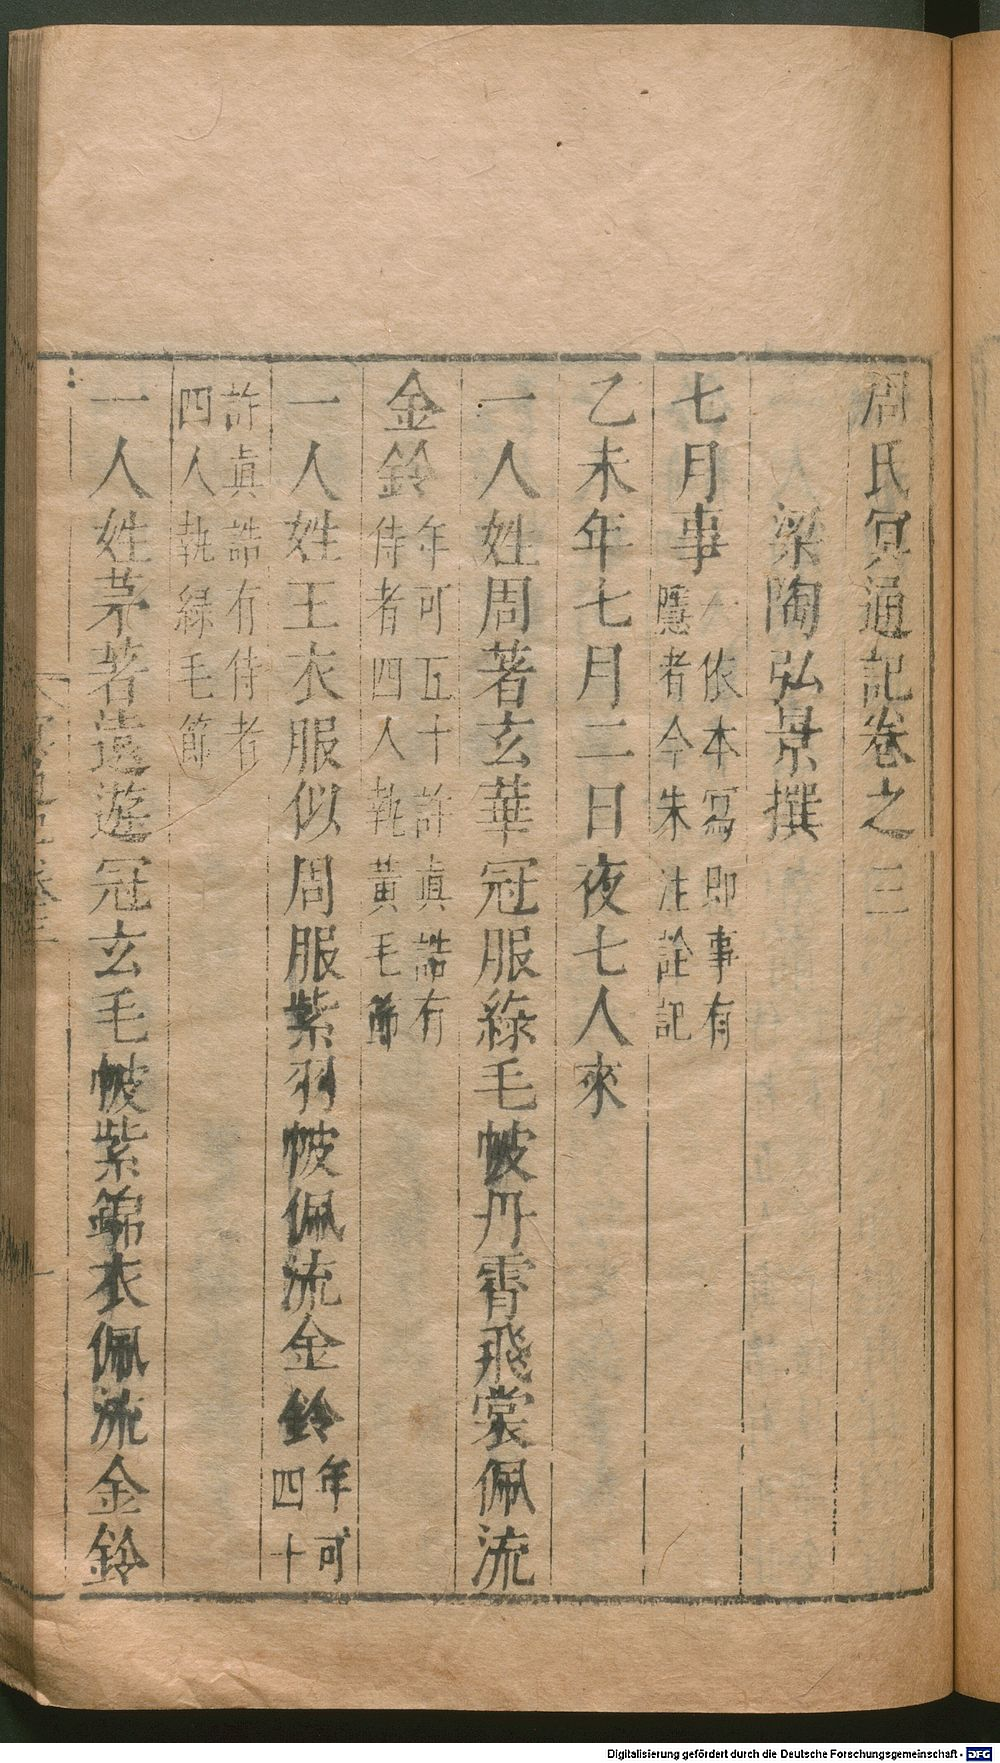 周氏冥通記卷之三
梁陶弘景撰
七月事依本寫即事有應者今朱注詮記
乙未年七月二日夜七人來
一人姓周著玄華冠服綠毛帔丹霄飛裳佩流
金鈴年可五十許真誥有侍者四人執黃毛節
一人姓王衣服似周服紫羽帔佩流金鈴年可四十
許真誥有侍者四人執綠毛節
一人姓茅著遠遊冠玄毛帔紫錦衣佩流金鈴
Digitalisierung gefördert durch die Deutsche Forschungsgemeinschaft - DFG